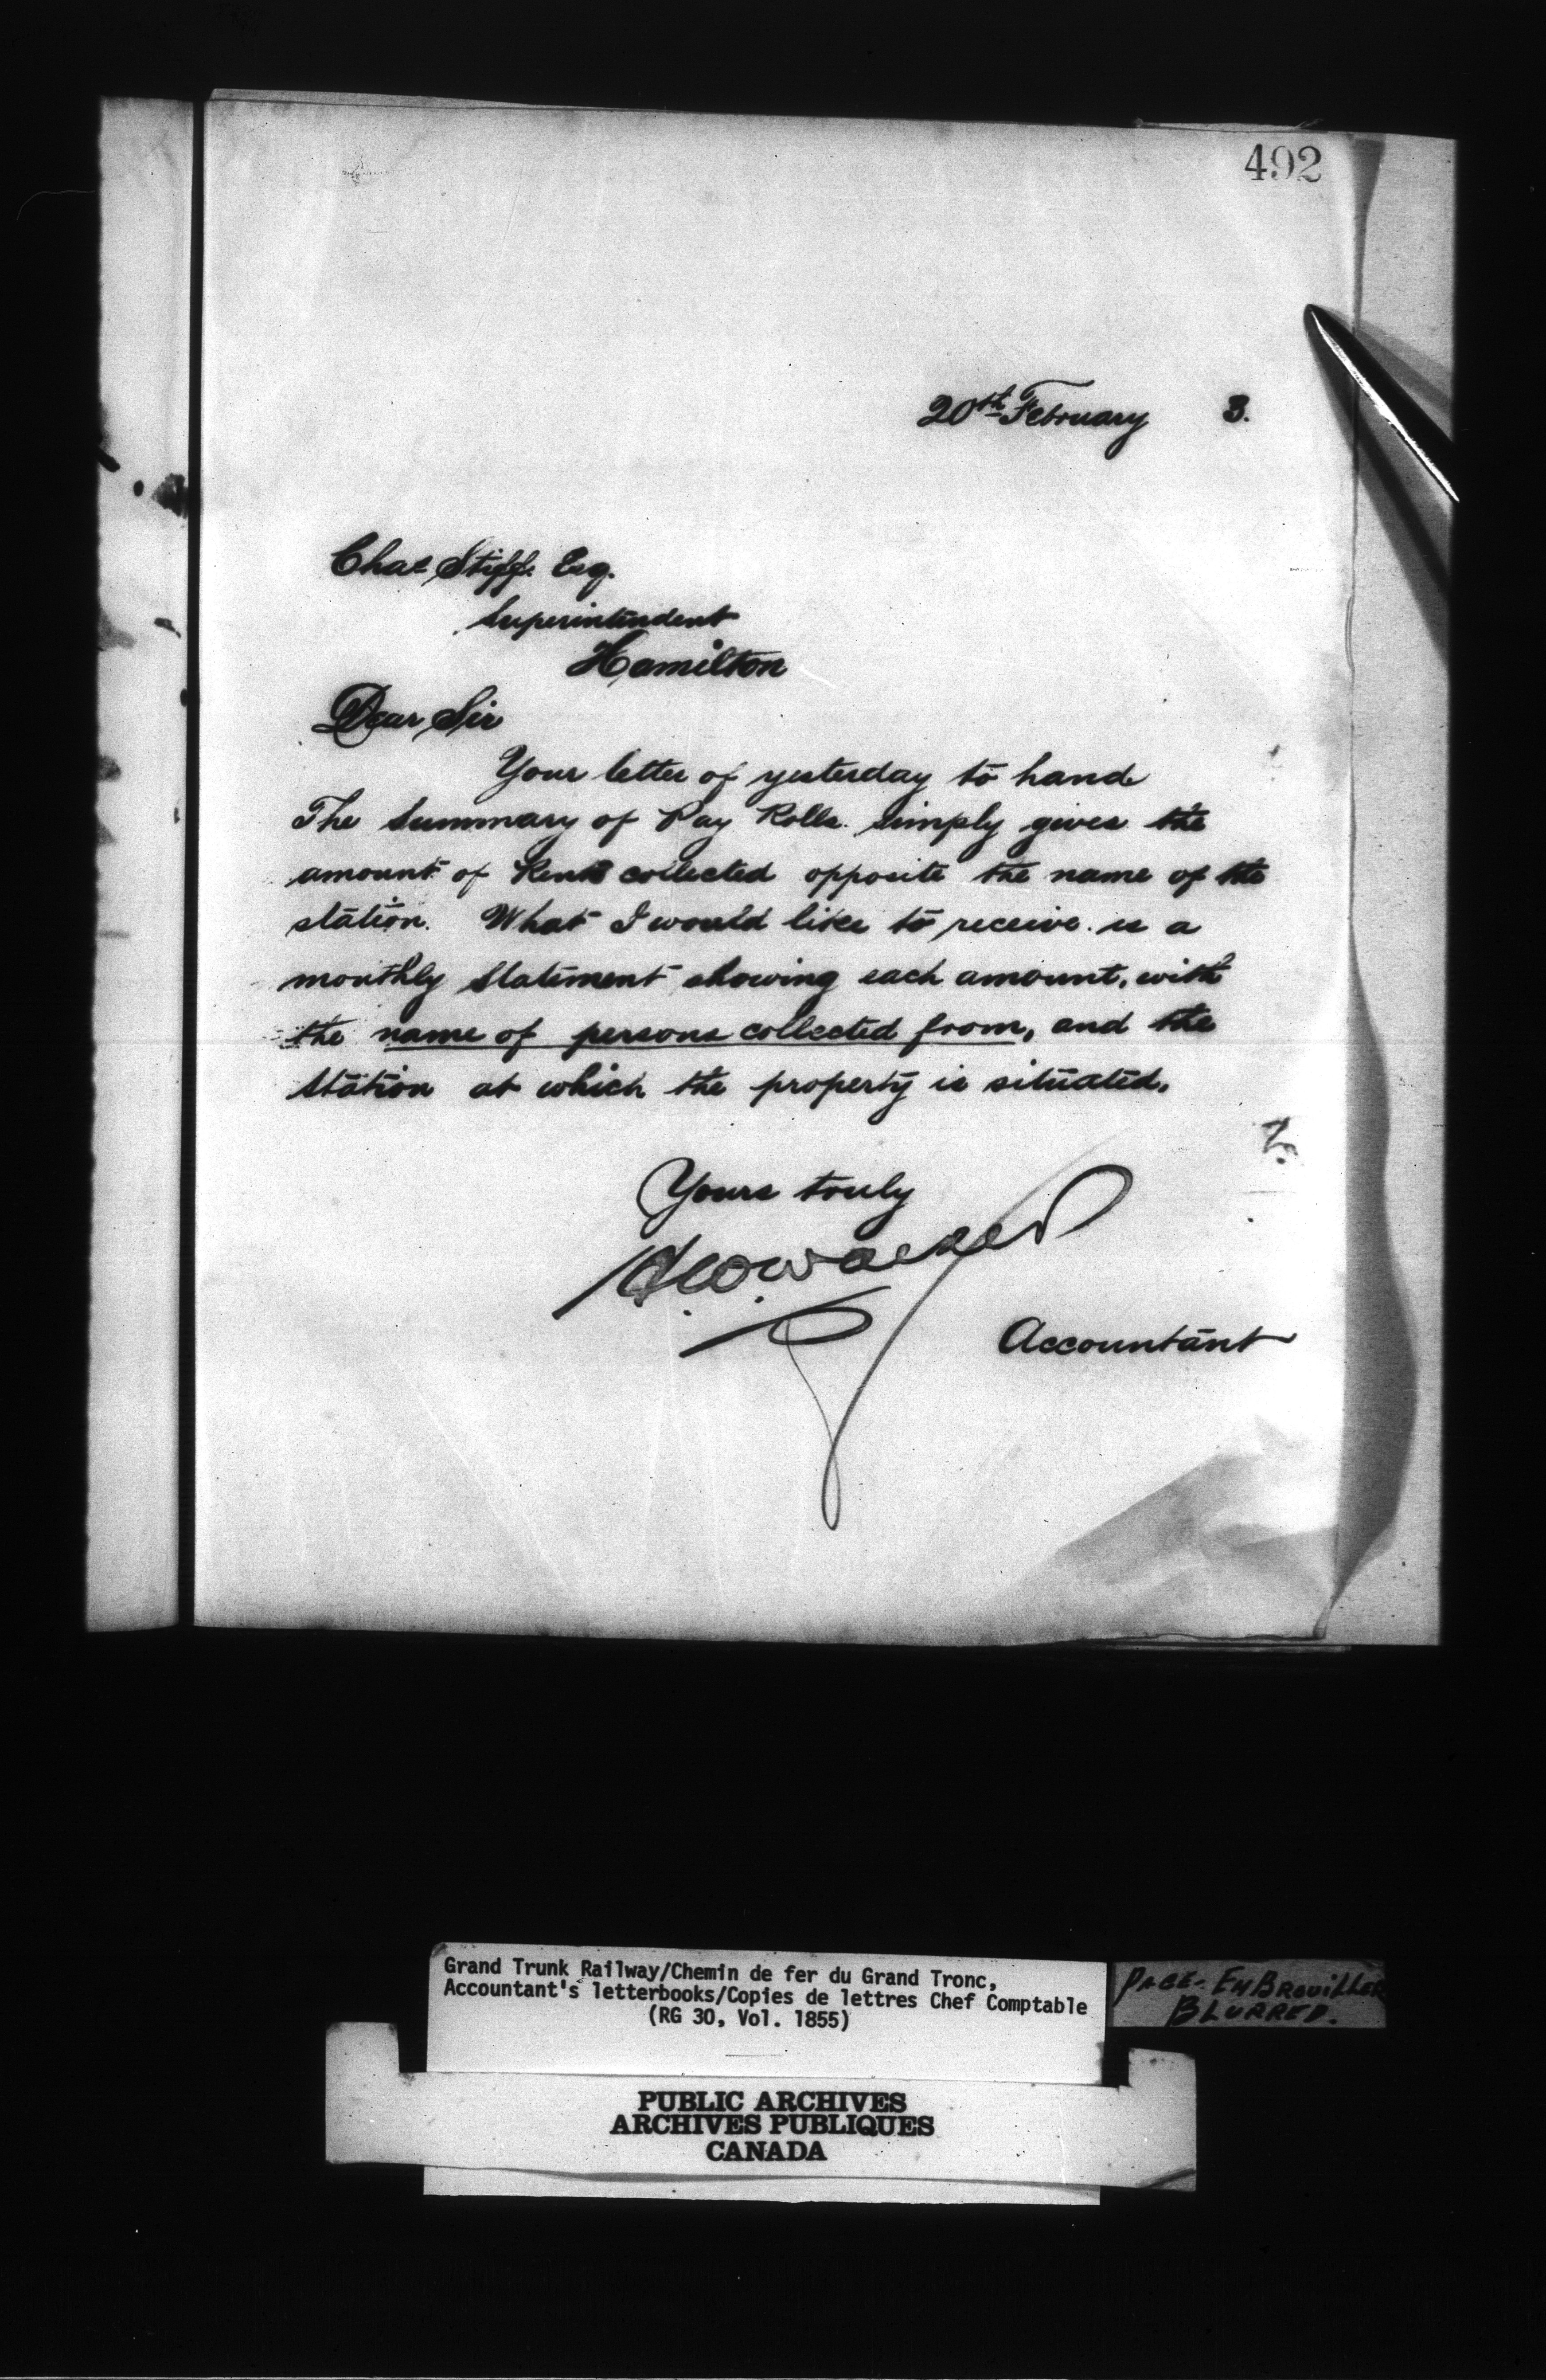 492
20th February 3.
Chas Stiff. Esq.
Superintendent
Hamilton
Dear Sir
Your letter of yesterday to hand
The Summary of Pay Rolls. simply gives the
amount of Rents collected opposite the name of the
station. What I would like to receive is a
monthly Statement showing each amount, with
the name of persons collected from, and the
Station at which the property is situated.
Yours truly
Accountant
Grand Trunk Railway/Chemin de fer du Grand Tronc,
Accountant's letterbooks/Copies de lettres Chef Comptable
(RG 30, Vol. 1855)
PAGE. EMBROUILLER
BLURRED.
PUBLIC ARCHIVES
ARCHIVES PUBLIQUES
CANADA